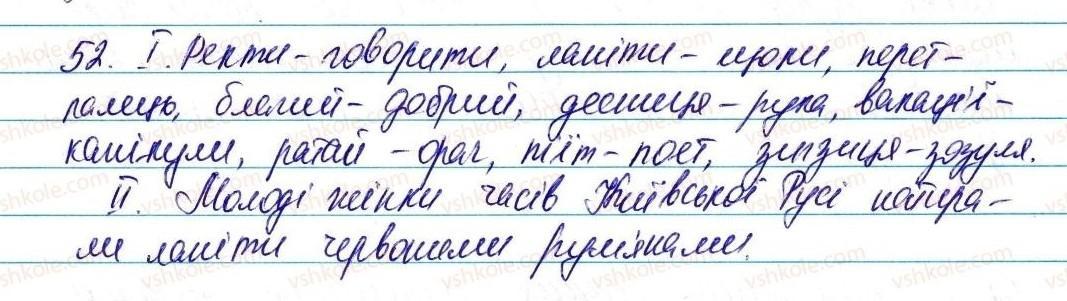 52. І. Ректи – говорити, ланіти – щоки, перст –
палець, благий – добрий, десниця – рука, вакації –
канікули, ратай – орач, піїт – поет, зигзиця – зозуля.
ІІ. Молоді жінки часів Київської Русі натира–
ли ланіти червоними рум'янами.